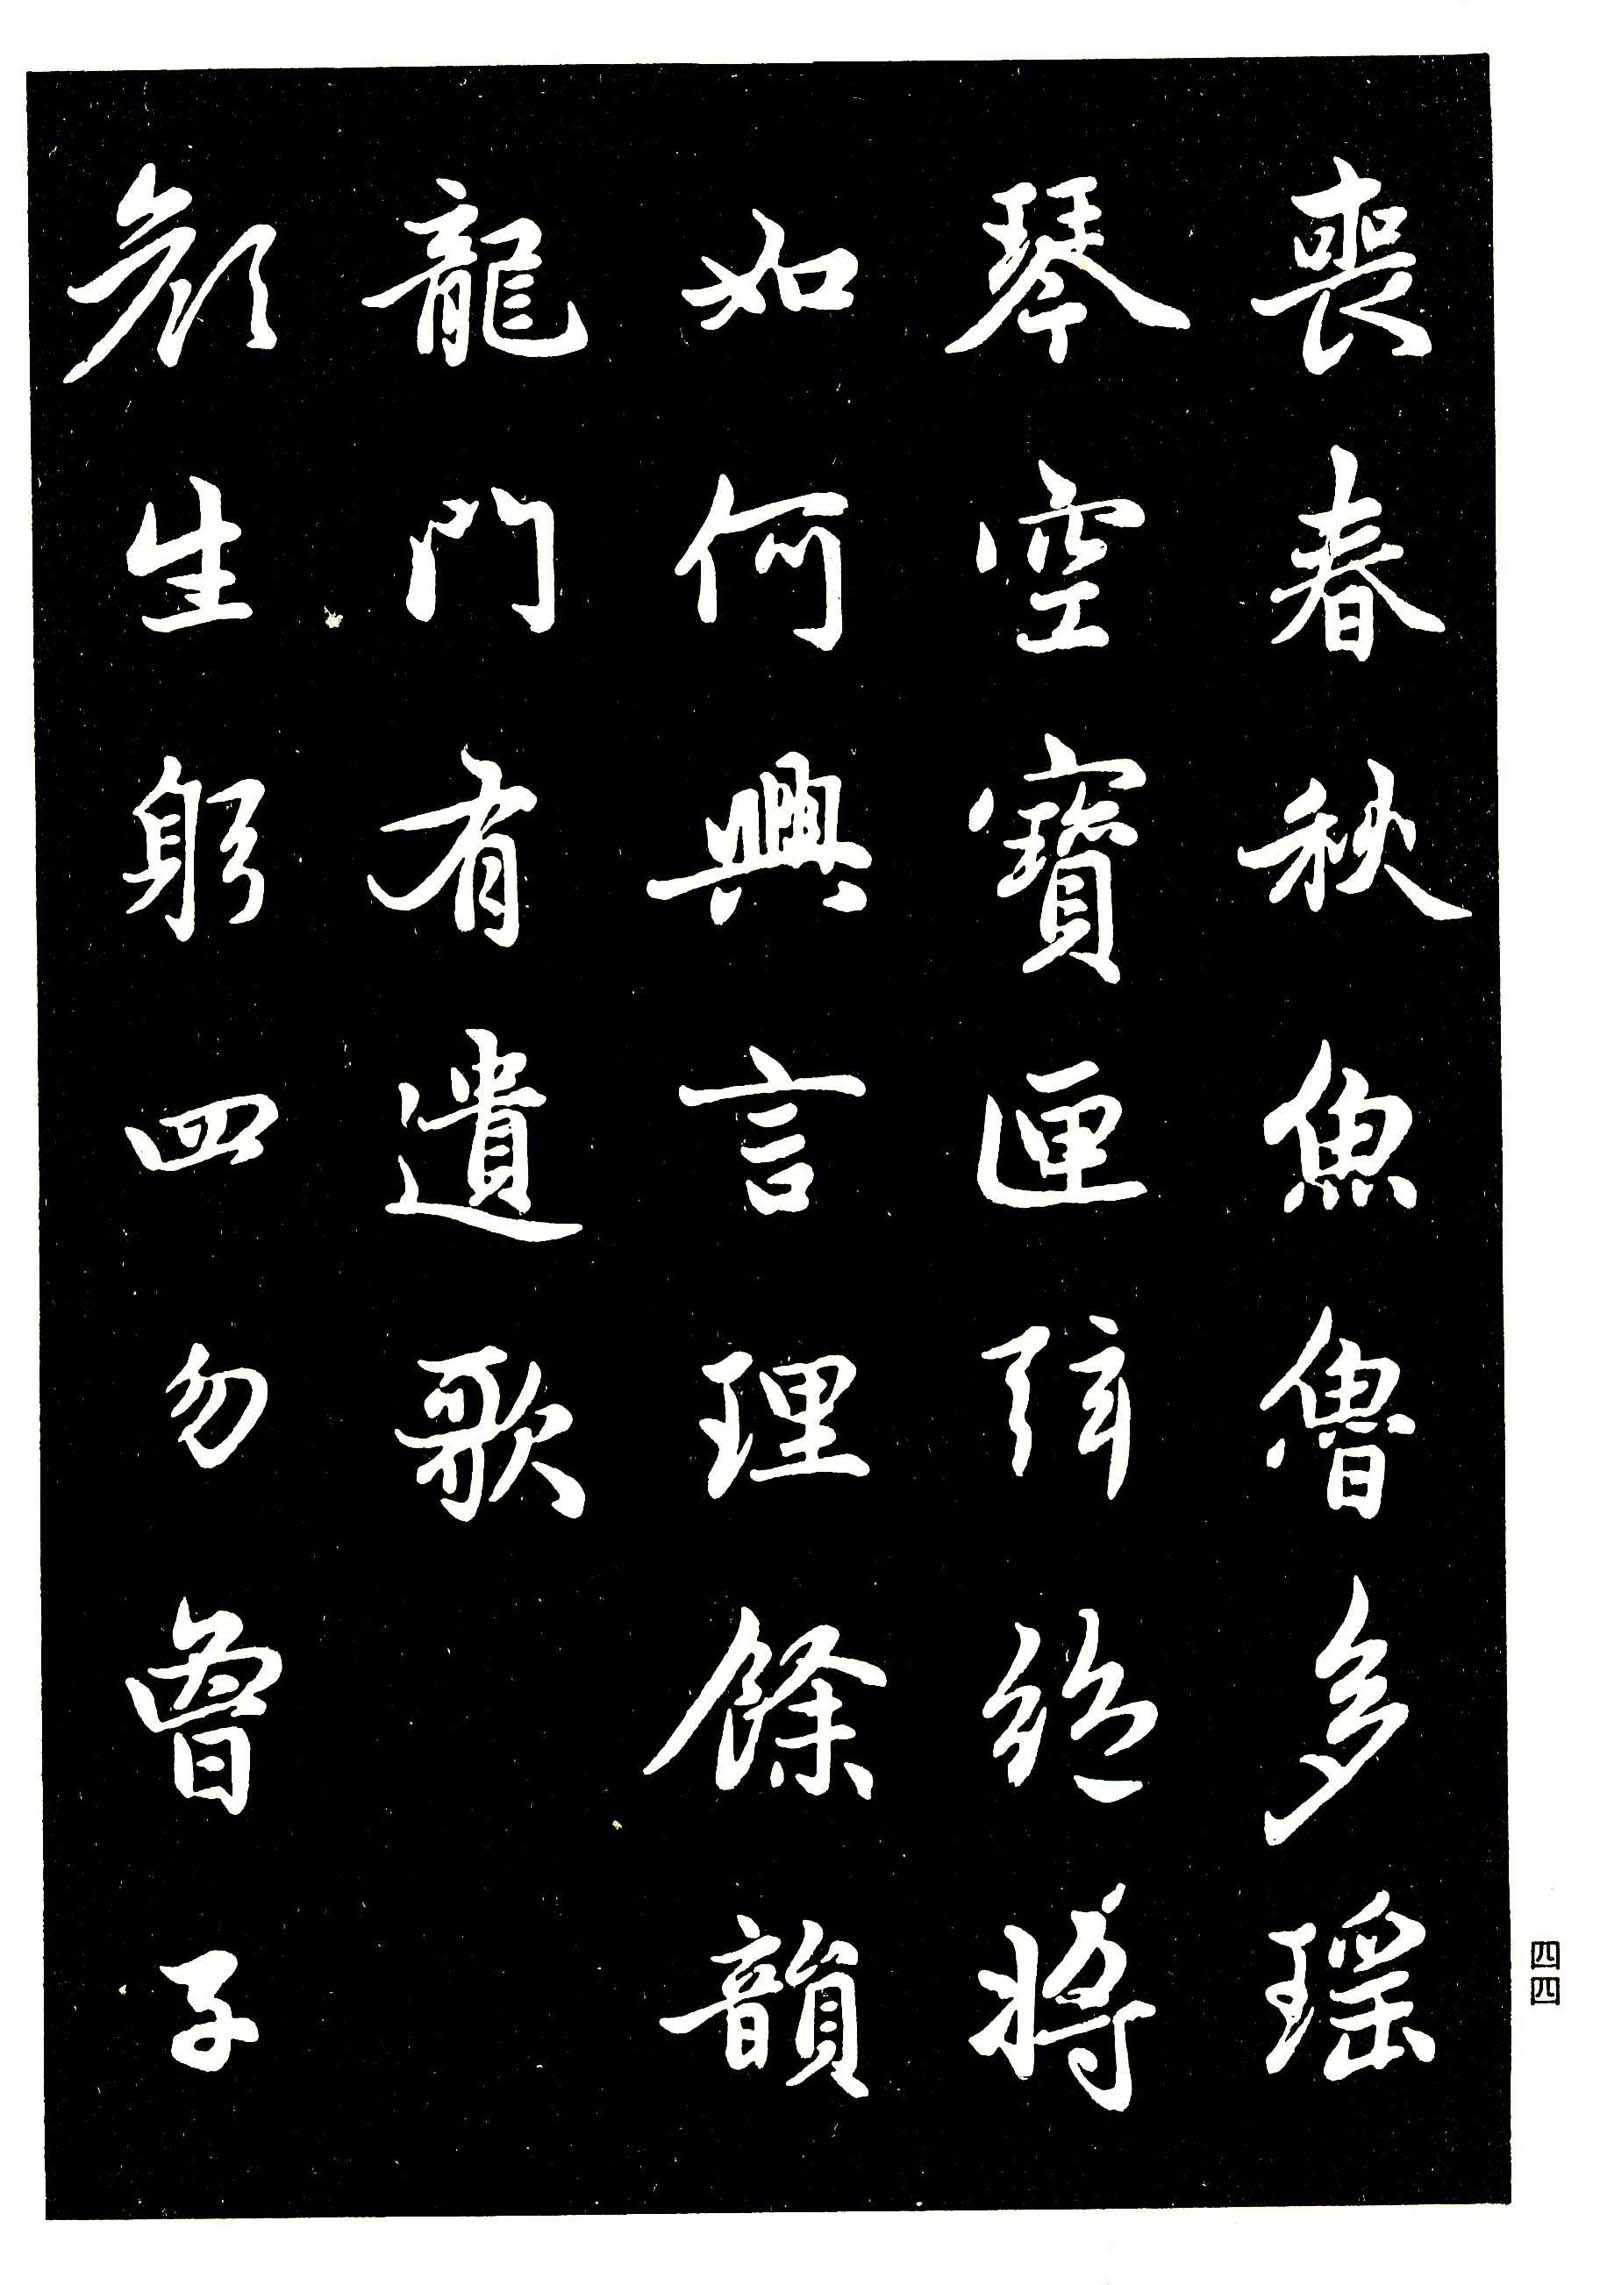 喪春秋魚魯多瑤
琴空寶匣弦絕將
如何興言理餘韻
龍門有遺歌
顏生躬四勿曾子
四四